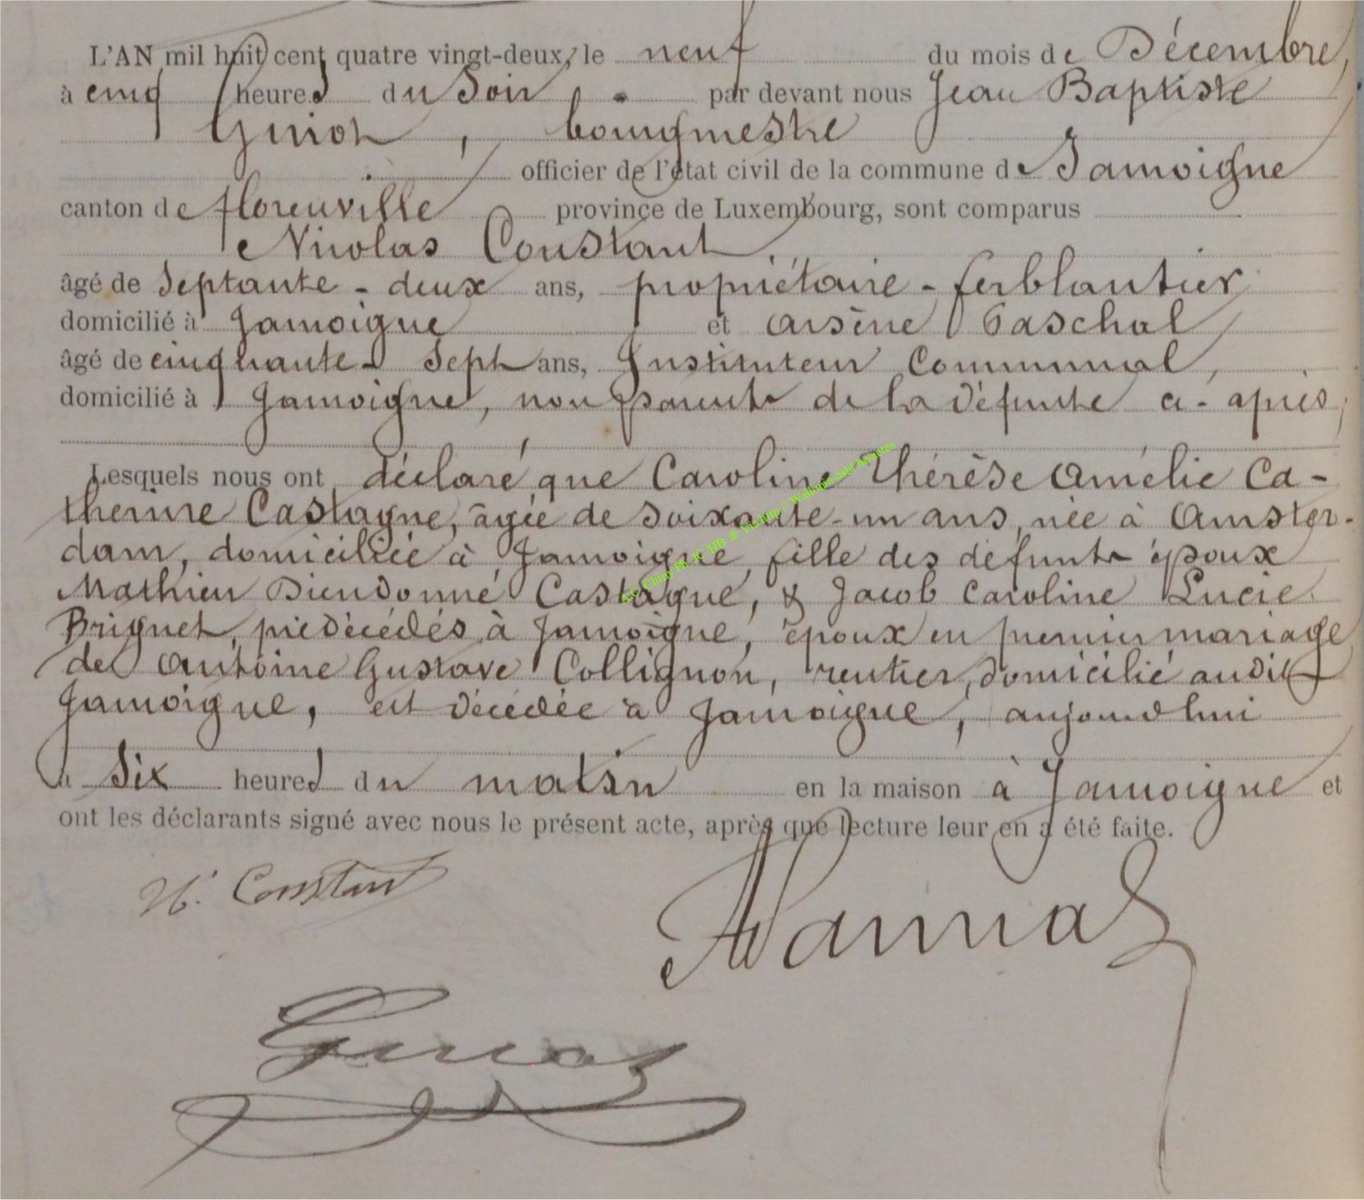 L'AN mil huit cent quatre vingt-deux, le neuf du mois de Décembre,
à cinq heures du Soir, par devant nous Jean Baptiste
Guiot, bourgmestre
officier de l'état civil de la commune de Jamoigne
canton de florenville province de Luxembourg, sont comparus
Nicolas Constant
âgé de Septante-deux ans, propriétaire-ferblantier
domicilié à Jamoigne et Arsène Paschal
âgé de cinquante-Sept ans, Instituteur Communal,
domicilié à Jamoigne, non parents de la défunte ci-après,
Lesquels nous ont déclaré que Caroline Thérèse Amélie Ca-
therine Castagne, âgée de Soixante-un ans, née à Amster-
dam, domiciliée à Jamoigne, fille des défunts époux
Mathieu Dieudonné Castagne, & Jacob Caroline Lucie
Brignet, prédécédés à Jamoigne, époux en premier mariage
de Antoine Gustave Collignon, rentier, domicilié audit
Jamoigne, est décédée à Jamoigne, aujourdhui
à Six heures du matin en la maison à Jamoigne et
ont les déclarants signé avec nous le présent acte, après que lecture leur en a été faite.
N. Constant
Guiot